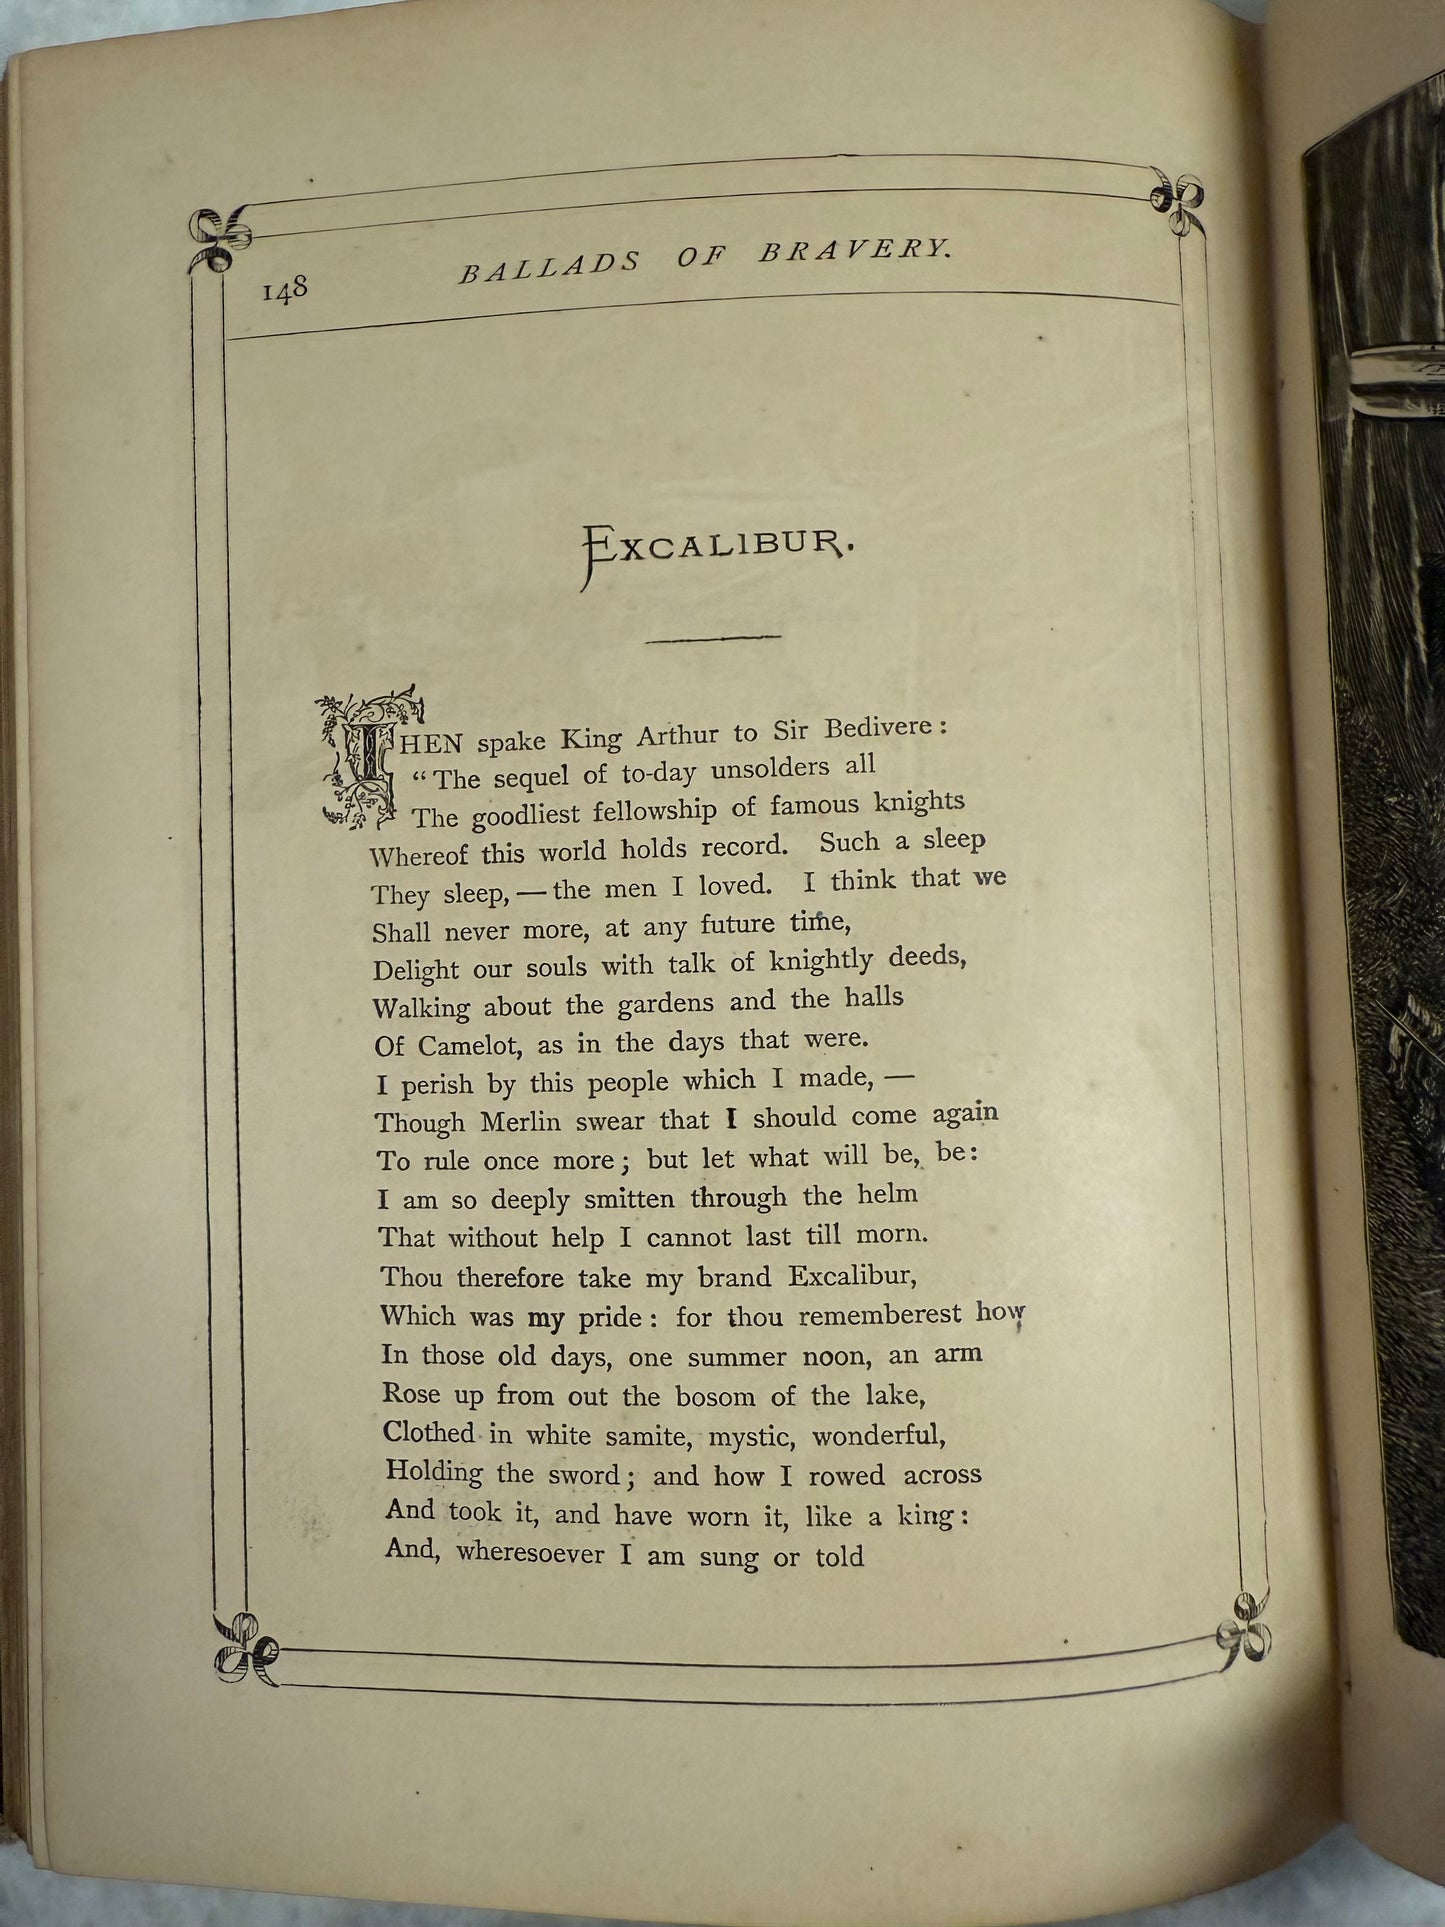 148
BALLADS OF BRAVERY.
EXCALIBUR.
THEN spake King Arthur to Sir Bedivere:
“The sequel of to-day unsolders all
The goodliest fellowship of famous knights
Whereof this world holds record. Such a sleep
They sleep, — the men I loved. I think that we
Shall never more, at any future time,
Delight our souls with talk of knightly deeds,
Walking about the gardens and the halls
Of Camelot, as in the days that were.
I perish by this people which I made, —
Though Merlin swear that I should come again
To rule once more; but let what will be, be:
I am so deeply smitten through the helm
That without help I cannot last till morn.
Thou therefore take my brand Excalibur,
Which was my pride: for thou rememberest how
In those old days, one summer noon, an arm
Rose up from out the bosom of the lake,
Clothed in white samite, mystic, wonderful,
Holding the sword; and how I rowed across
And took it, and have worn it, like a king:
And, wheresoever I am sung or told